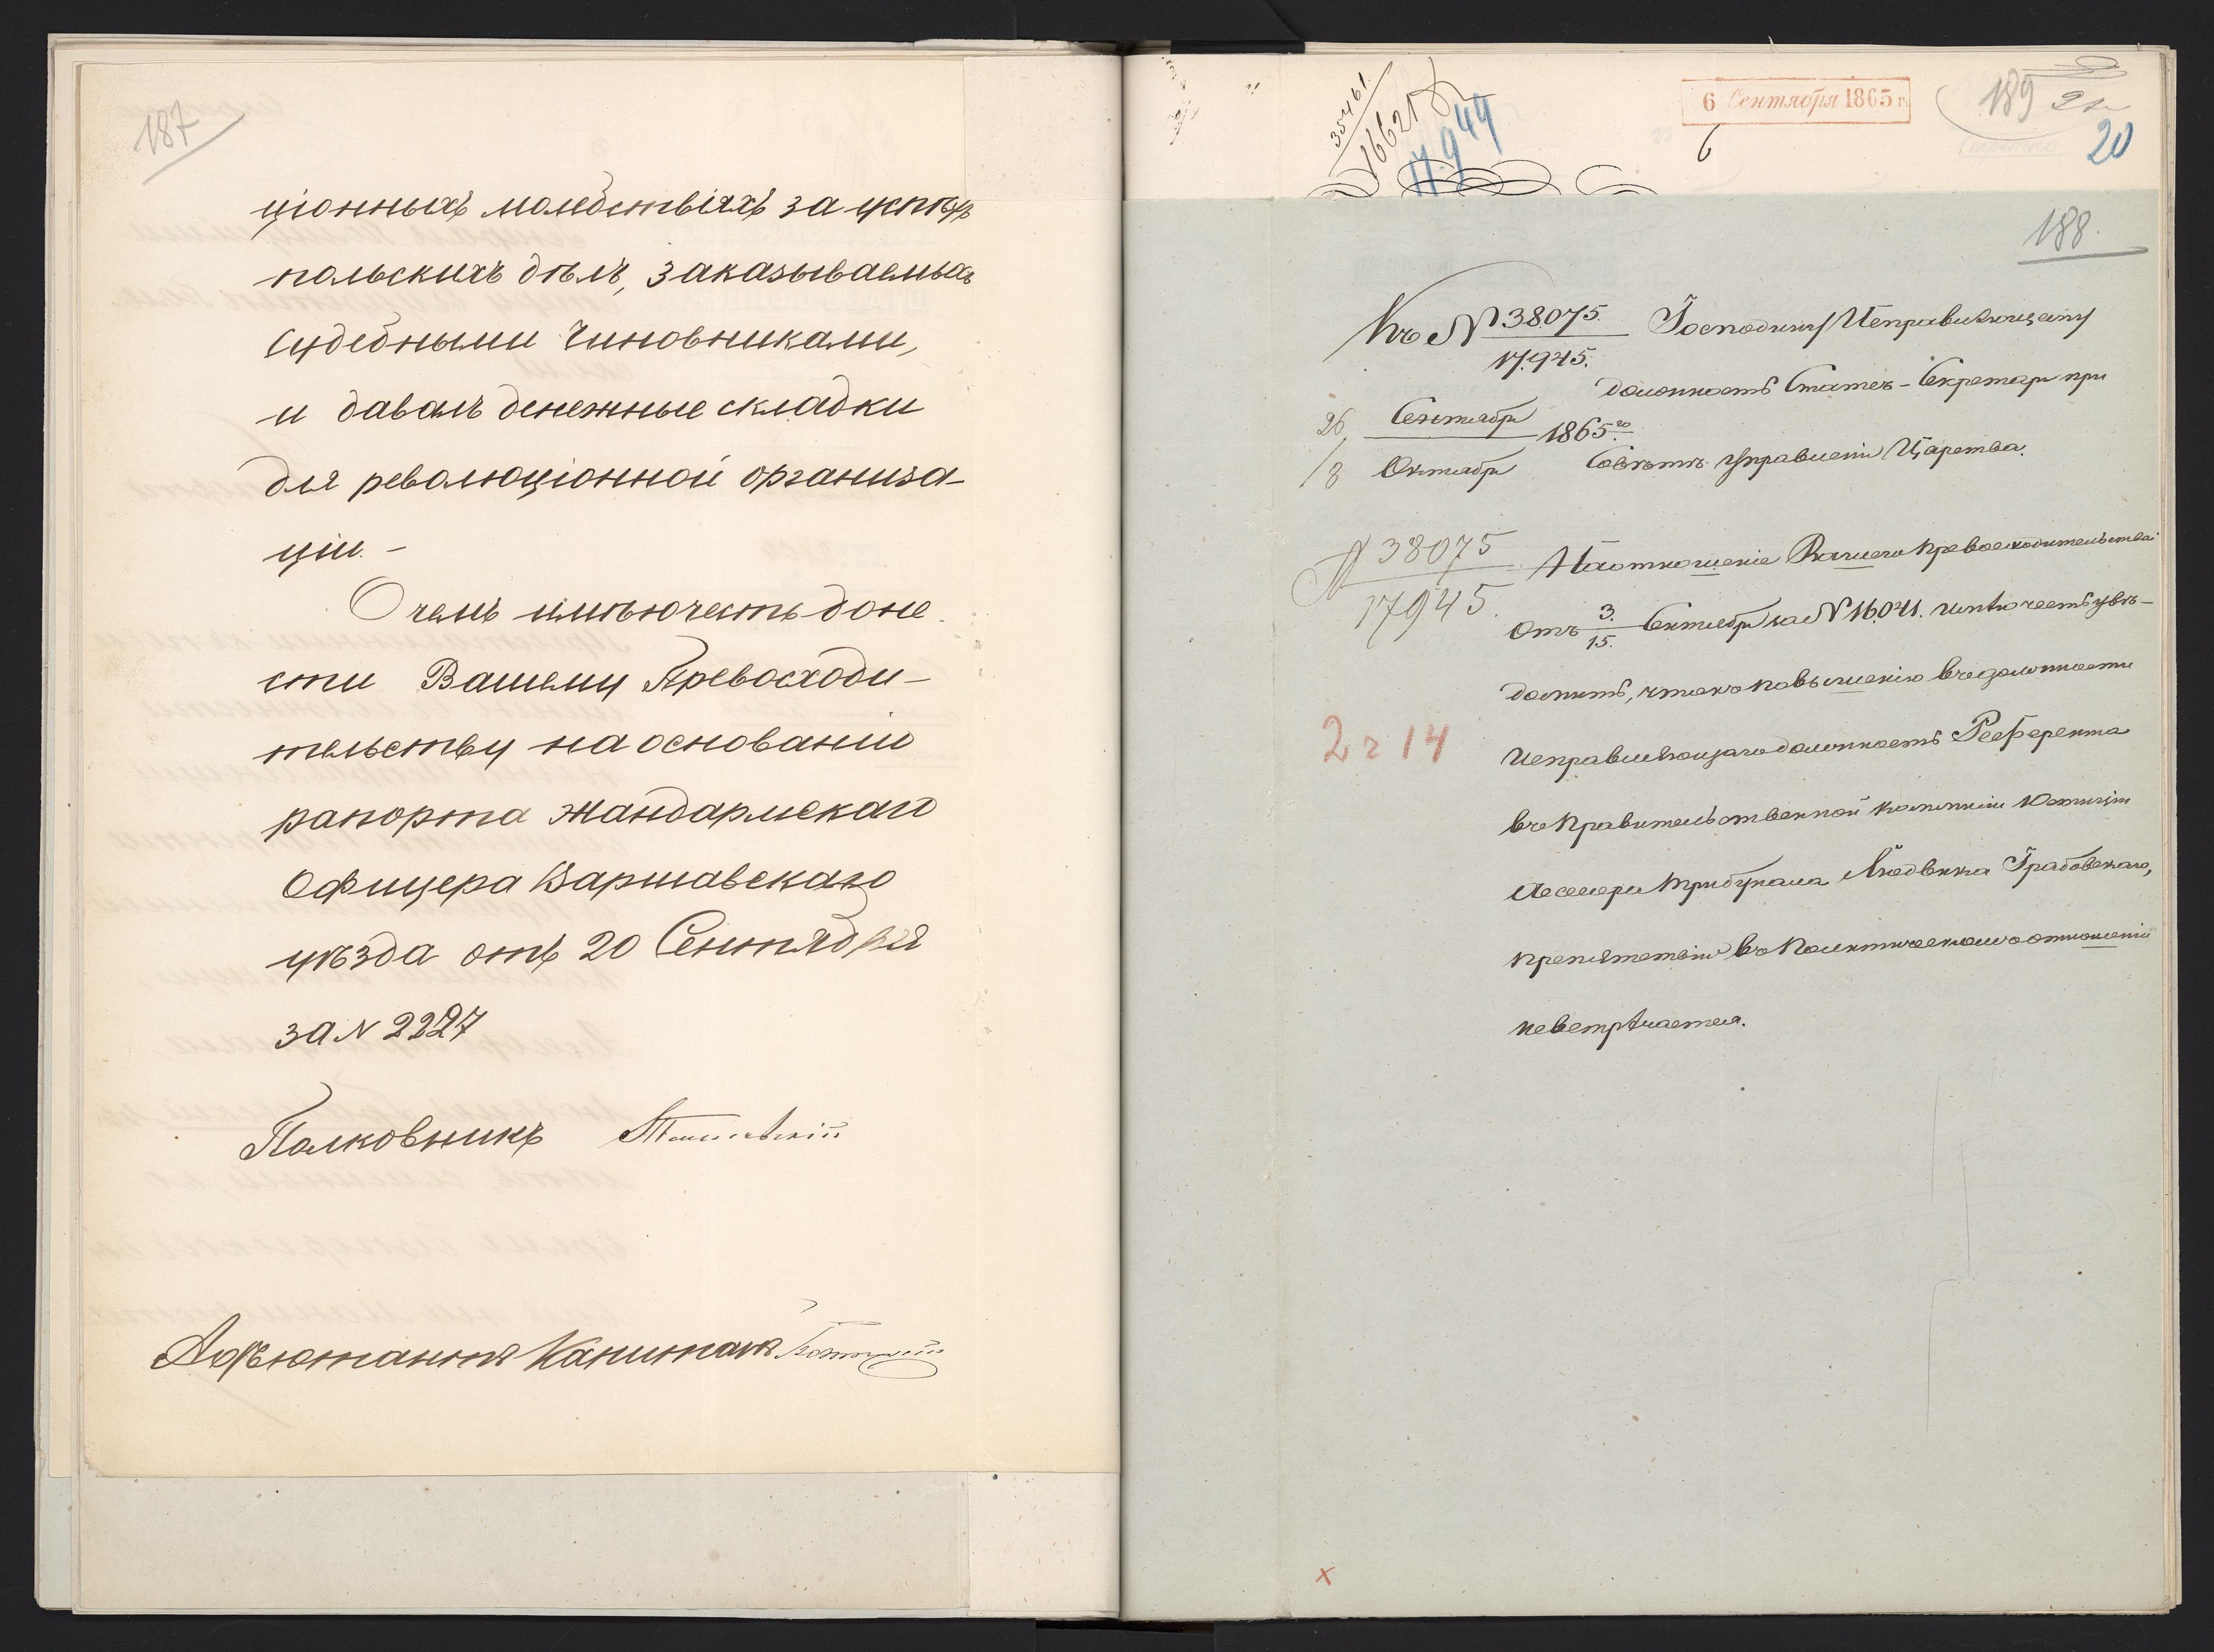 187
ціонныхъ молебствіяхъ за успѣхъ
польскихъ дѣлъ, заказываемыхъ
судебными чиновниками,
и давалъ денежные складки
для революціонной организа-
ціи. -
О чемъ имѣю честь доне
сти Вашему Превосходи-
тельству на основаніи
рапорта Жандармскаго
Офицера Варшавскаго
уѣзда отъ 20 Сентября
за № 2227
Полковникъ
Адъютантъ Капитанъ
35461.
16621
17.944
6 Сентября 1865 г.
6
189
21
20
188.
Къ № 38075.
17.945.
Господину Исправляющему
должность Статсъ-Секретаря при
Совѣтѣ Управленія Царства.
26 Сентября
1865го
/8 Октября
№ 38075
17945.
На отношеніе Вашего Превосходительства
отъ 3./15. Сентября за № 16.041. имѣю честь увѣ-
домить, что къ повышенію въ должности
2 г 14
Исправляющаго должность Референта
въ Правительственной Коммисіи Юстиціи
Ассесора Трибунала Людвика Грабовскаго,
препятствія въ политическомъ отношеніи
не встрѣчается.
х